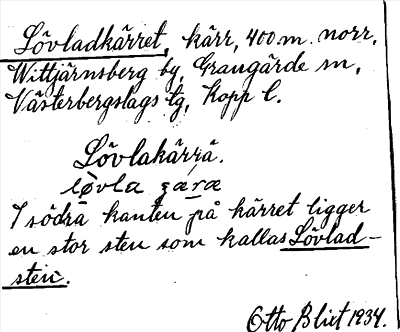 Lövladkärret, kärr, 400 m. norr,
Wittjärnsberg by, Grangärde sn,
Västerbergslags tg, Kopp l.
Lövlakärrä.
lø̀vla ʒæ̀ræ
I södra kanten på kärret ligger
en stor sten som kallas Lövlad-
sten.
Otto Blixt 1934.